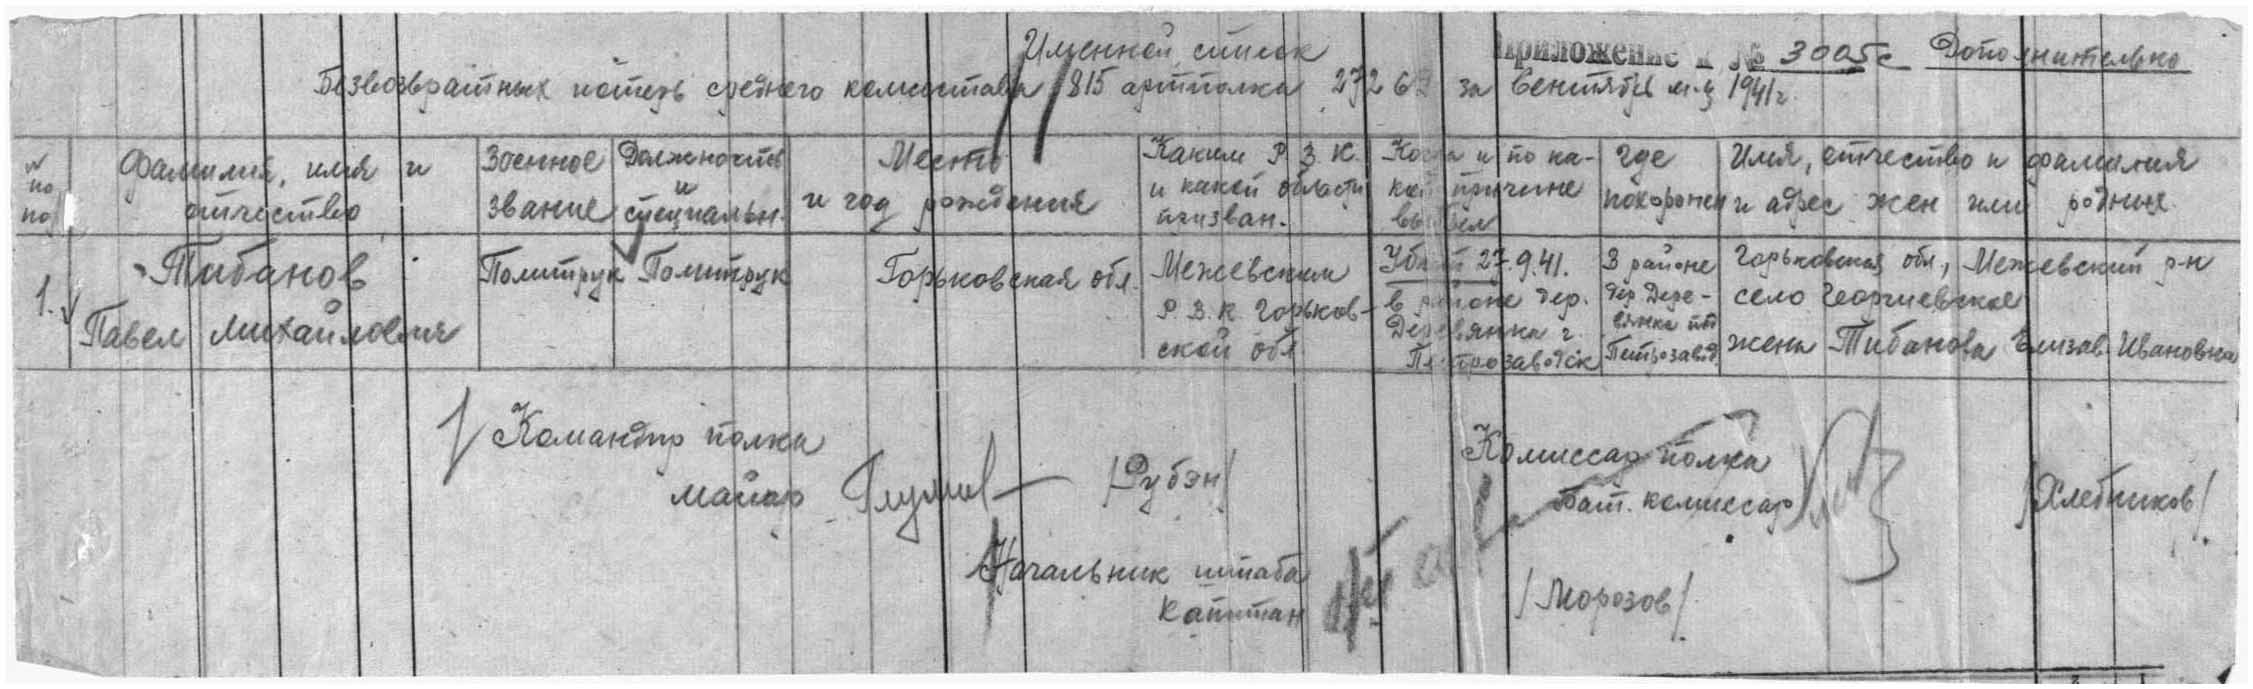 Приложение к № 3005с Дополнительно
Именной список
Безвозвратных потерь среднего комсостава 815 артполка 272 сд за Сентябрь м-ц 1941 г.
№ по по
Фамилия, имя и отчество
Военное звание
Должность и специальн.
Место и год рождения
Каким Р.В.К. и какой области призван.
Когда и по ка-
кой причине
выбыл
Где похоронен
Имя, отчество и фамилия
и адрес жен или родных
1.
Тибанов
Павел Михайлович
Политрук
Политрук
Горьковская обл.
Межевским
Р.В.К. Горьков-
ской обл.
Убит 27.9.41.
в районе дер.
Деревянка г.
Петрозаводск
В районе
дер Дере-
вянка
Петрозавод
Горьковская обл., Межевский р-н
село Георгиевское
жена Тибанова Елизав. Ивановна
Командир полка
майор /Рубэн/
Комиссар полка
Бат. комиссар /Хлебников/
Начальник штаба
капитан /Морозов/